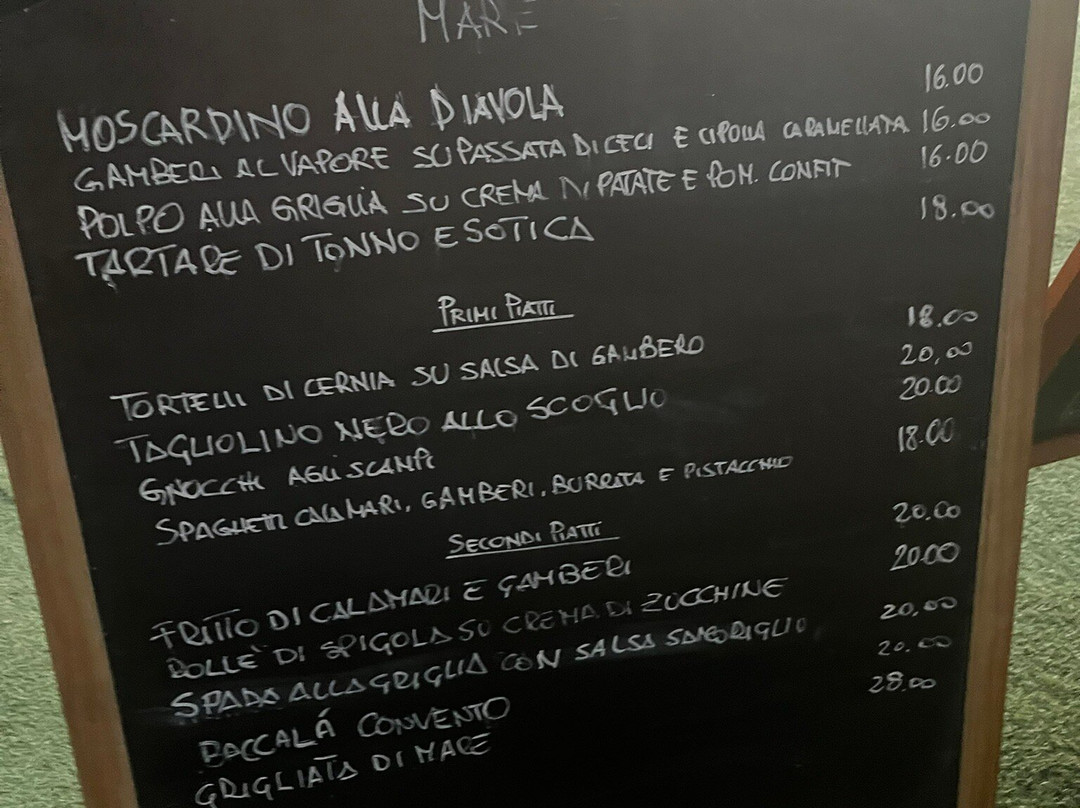 MARE
MOSCARDINO ALLA DIAVOLA 16.00
GAMBERI AL VAPORE SU PASSATA DI CECI E CIPOLLA CARAMELLATA 16.00
POLPO ALLA GRIGLIA SU CREMA DI PATATE E POM. CONFIT 16.00
TARTARE DI TONNO ESOTICA 18.00
PRIMI PIATTI
TORTELLI DI CERNIA SU SALSA DI GAMBERO 18.00
TAGLIOLINO NERO ALLO SCOGLIO 20,00
GNOCCHI AGLI SCAMPI 20.00
SPAGHETTI CALAMARI, GAMBERI, BURRATA E PISTACCHIO 18.00
SECONDI PIATTI
FRITTO DI CALAMARI E GAMBERI 20.00
ROLLE' DI SPIGOLA SU CREMA DI ZUCCHINE 20.00
SPADA ALLA GRIGLIA CON SALSA SAMORIGLIO 20,00
BACCALÁ CONVENTO 20.00
GRIGLIATA DI MARE 28.00